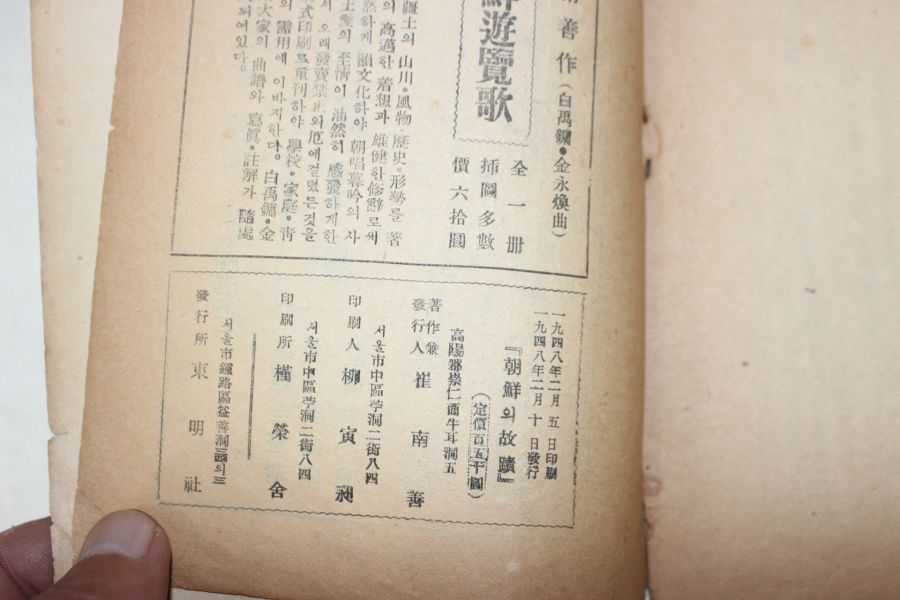 善作(白禹鏞•金永煥曲)
鮮遊覽歌
全一冊
揷圖多數
價六拾圓
疆土의 山川•風物•歷史•形勢를 著
의 高邁한 着想과 雄健한 修辭로써
然하게 韻文化하야 朝唱暮吟의 사
土愛의 至情이 油然히 感發하게한
서 오래 發賣禁止의 厄에 걸렸든것을
式印刷로 重刊하야 學校•家庭•靑
의 需用에 이바지한다. 白禹鏞•金
大家의 曲譜와 寫眞•註解가 隨處
되여있다.
一九四八年二月 五 日印刷
一九四八年二月 十 日發行
『朝鮮의 故蹟』
(定價百五十圓)
高陽郡崇仁面牛耳洞五
著作兼
發行人 崔南善
서울市中區苧洞二街八四
印刷人 柳寅昶
서울市中區苧洞二街八四
印刷所 槿榮舍
서울市鍾路區益善洞의三
發行所 東明社